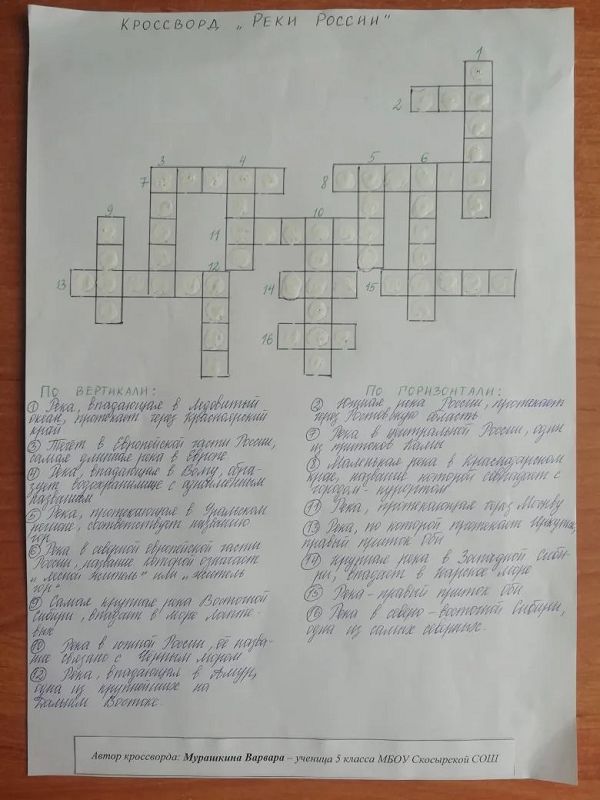 КРОССВОРД „РЕКИ РОССИИ"
1
2
3 4 5 6
7 8
9 10
11
12
13 14 15
16
ПО ВЕРТИКАЛИ:
① Река, впадающая в Ледовитый
океан, протекает через Красноярский
край
③ Течёт в Европейской части России,
самая длинная река в Европе
④ Река, впадающая в Волгу,
водохранилище с одноимённым
названием
⑤ Река, протекающая в Уральском
регионе, соответствует названию
гор
⑥ Река в северной европейской части
России, название которой означает
„лесной житель" или „житель
гор"
⑨ Самая крупная река Восточной
Сибири, впадает в море Лапте-
вых
⑩ Река в южной России, её назва-
ние связано с Чёрным морем
⑫ Река, впадающая в Амур,
одна из крупнейших на
Дальнем Востоке.
ПО ГОРИЗОНТАЛИ:
② Южная река России, протекает
через Ростовскую область
⑦ Река в центральной России, один
из притоков Камы
⑧ Маленькая река в Краснодарском
крае, название которой совпадает с
городом-курортом
⑪ Река, протекающая через Москву
⑬ Река, по которой протекает Иркутск,
правый приток Оби
⑭ крупная река в Западной Сиби-
ри, впадает в Карское море
⑮ Река - правый приток Оби
⑯ Река в северо-восточной Сибири,
одна из самых северных.
Автор кроссворда: Мурашкина Варвара – ученица 5 класса МБОУ Скосырской СОШ